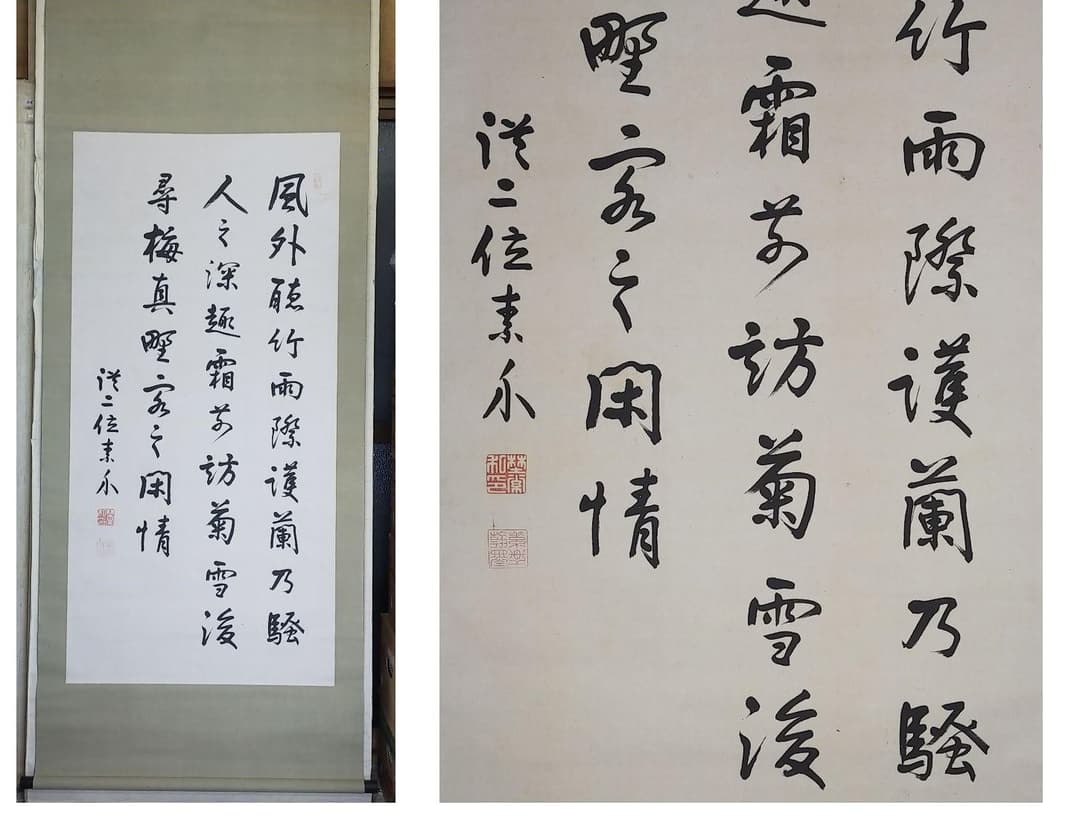 風外聴竹雨際護蘭乃騒
人之深趣霜前訪菊雪後
尋梅真野客之閑情
従二位素
竹雨際護蘭乃騒
趣霜前訪菊雪後
野客之閑情
従二位素